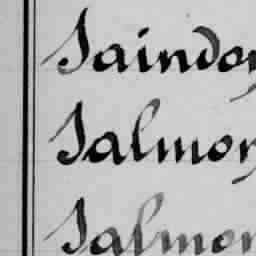 Saindon
Salmon
Salmon